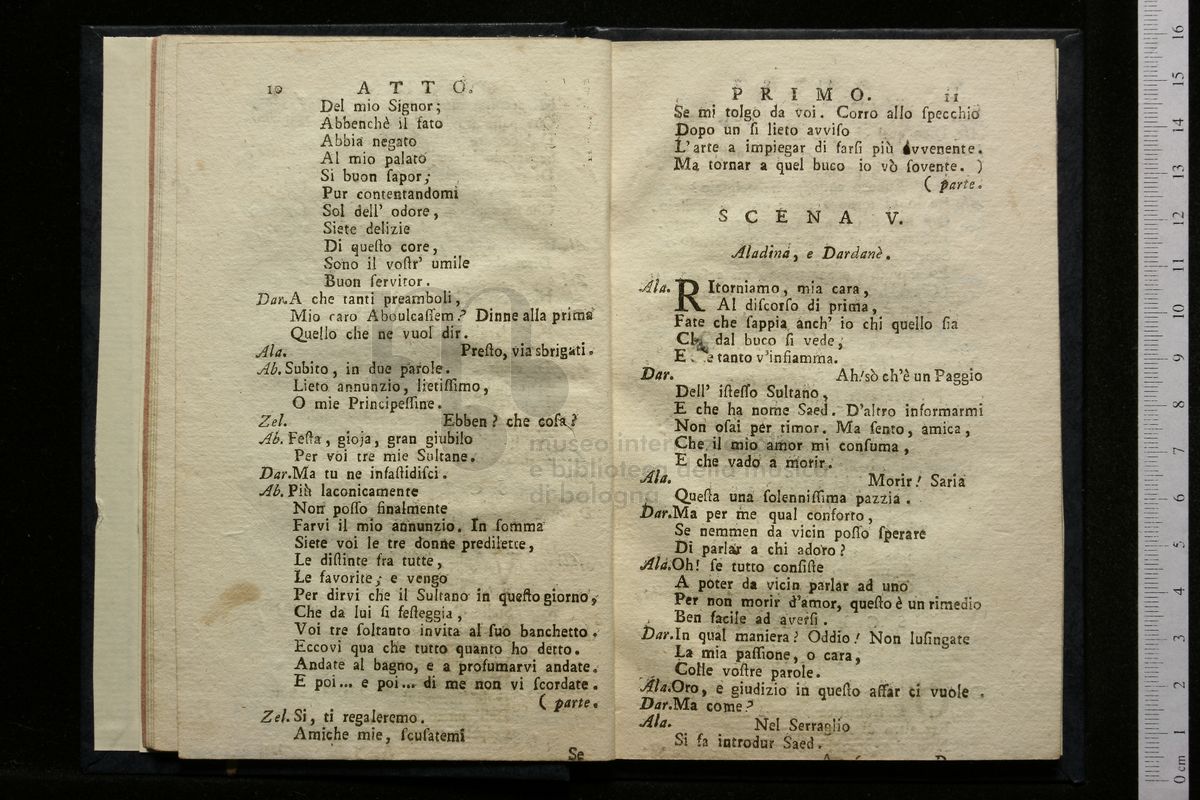 10 ATTO.
Del mio Signor;
Abbenchè il fato
Abbia negato
Al mio palato
Si buon ſapor;
Pur contentandomi
Sol dell' odore,
Siete delizie
Di queſto core,
Sono il voſtr' umile
Buon ſervitor.
Dar. A che tanti preamboli,
Mio caro Aboulcaſſem? Dinne alla prima
Quello che ne vuol dir.
Ala. Preſto, via sbrigati.
Ab. Subito, in due parole.
Lieto annunzio, lietiſſimo,
O mie Principeſſine.
Zel. Ebben? che coſa?
Ab. Feſta, gioja, gran giubilo
Per voi tre mie Sultane.
Dar. Ma tu ne infaſtidiſci.
Ab. Più laconicamente
Non poſſo finalmente
Farvi il mio annunzio. In ſomma
Siete voi le tre donne predilette,
Le diſtinte fra tutte,
Le favorite; e vengo
Per dirvi che il Sultano in queſto giorno,
Che da lui ſi feſteggia,
Voi tre ſoltanto invita al ſuo banchetto.
Eccovi qua che tutto quanto ho detto.
Andate al bagno, e a profumarvi andate.
E poi... e poi... di me non vi ſcordate.
( parte.
Zel. Si, ti regaleremo.
Amiche mie, ſcuſatemi
Se
PRIMO. 11
Se mi tolgo da voi. Corro allo ſpecchio
Dopo un ſi lieto avviſo
L'arte a impiegar di farſi più avvenente.
Ma tornar a quel buco io vò ſovente. )
( parte.
SCENA V.
Aladina, e Dardanè.
Ala. RItorniamo, mia cara,
Al diſcorſo di prima,
Fate che ſappia anch' io chi quello ſia
dal buco ſi vede;
E tanto v'infiamma.
Dar. Ah! sò ch'è un Paggio
Dell' iſteſſo Sultano,
E che ha nome Saed. D'altro informarmi
Non oſai per timor. Ma ſento, amica,
Che il mio amor mi conſuma,
E che vado a morir.
Ala. Morir! Saria
Queſta una ſolenniſſima pazzia.
Dar. Ma per me qual conforto,
Se nemmen da vicin poſſo ſperare
Di parlar a chi adoro?
Ala. Oh! ſe tutto conſiſte
A poter da vicin parlar ad uno
Per non morir d'amor, queſto è un rimedio
Ben facile ad averſi.
Dar. In qual maniera? Oddio! Non luſingate
La mia paſſione, o cara,
Colle voſtre parole.
Ala. Oro, e giudizio in queſto affar ci vuole.
Dar. Ma come?
Ala. Nel Serraglio
Si fa introdur Saed.
museo internazionale
e biblioteca della musica
di bologna
0 cm 1 2 3 4 5 6 7 8 9 10 11 12 13 14 15 16